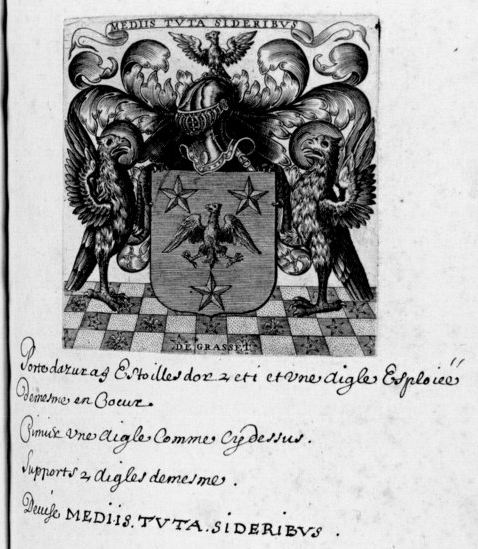 MEDIIS TVTA SIDERIBVS
DE GRASSET
Porte dazur a 3 Estoilles dor 2 et 1 et Vne aigle Esploiée
demesme en Coeur.
Cimide Vne aigle Comme Cydessus.
Supports 2 aigles demesme.
Devise MEDIIS. TVTA. SIDERIBVS.